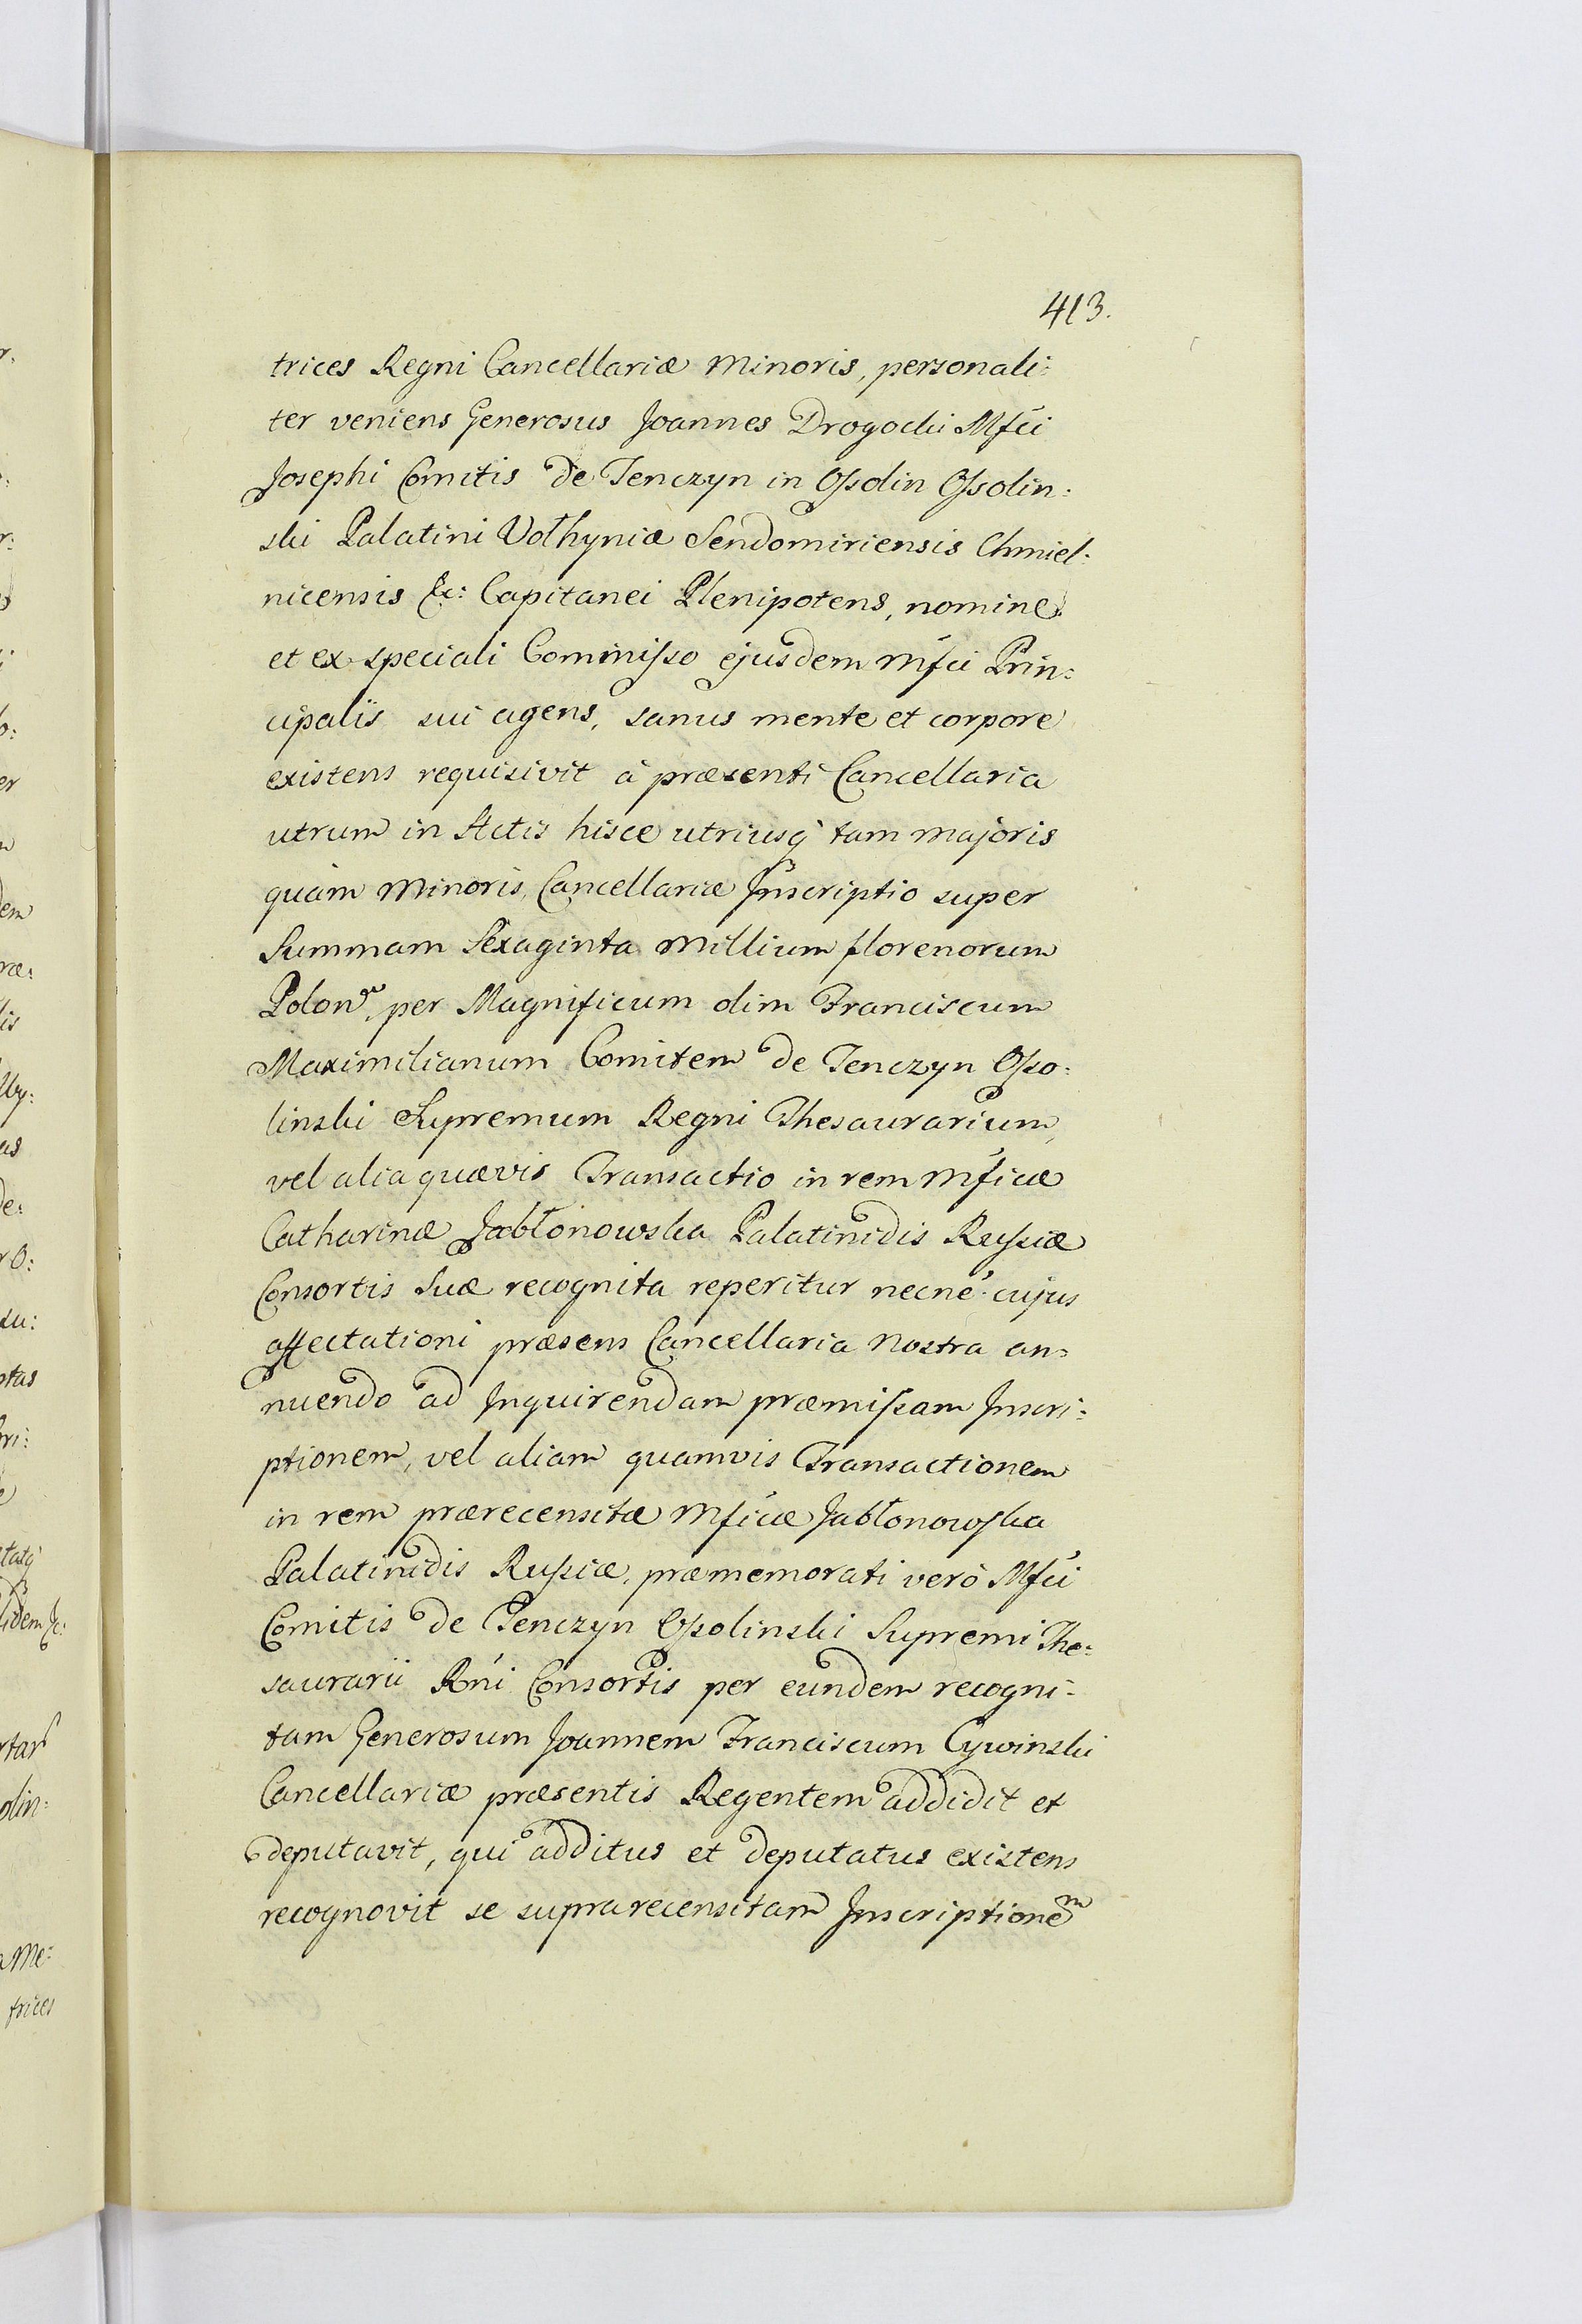 413.
trices Regni Cancellariæ Minoris, personali:
ter veniens Generosus Joannes Drogocki Mfci
Josephi Comitis de Tenczyn in Ossolin Ossolin:
ski Palatini Volhyniæ Sendomiriensis Chmiel:
nicensis &c: Capitanei Plenipotens, nomine
et ex speciali Commisso ejusdem Mfci Prin:
cipalis sui agens, sanus mente et corpore
existens requisivit à præsenti Cancellaria
utrum in Actis hisce utriusq́ tam Majoris
quàm Minoris, Cancellariæ Inscriptio super
Summam Sexaginta Millium florenorum
Polon. per Magnificum olim Franciscum
Maximilianum Comitem de Tenczyn Osso:
linski Supremum Regni Thesaurarium,
vel alia quævis Transactio in rem Mficæ
Catharinæ Jabłonowska Palatinidis Russiæ
Consortis Suæ recognita reperitur necne. cujus
affectationi præsens Cancellaria Nostra an:
nuendo ad Inquirendam præmissam Inscri:
ptionem, vel aliam quamvis Transactionem
in rem prærecensitæ Mficæ Jabłonowska
Palatinidis Russiæ, præmemorati verò Mfci
Comitis de Tenczyn Ossolinski Supremi The:
saurarii Rńi Consortis per eundem recogni:
tam Generosum Joannem Franciscum Cywinski
Cancellariæ præsentis Regentem addidit et
deputavit, qui additus et deputatus existens
recognovit se suprarecensitam Inscriptionem